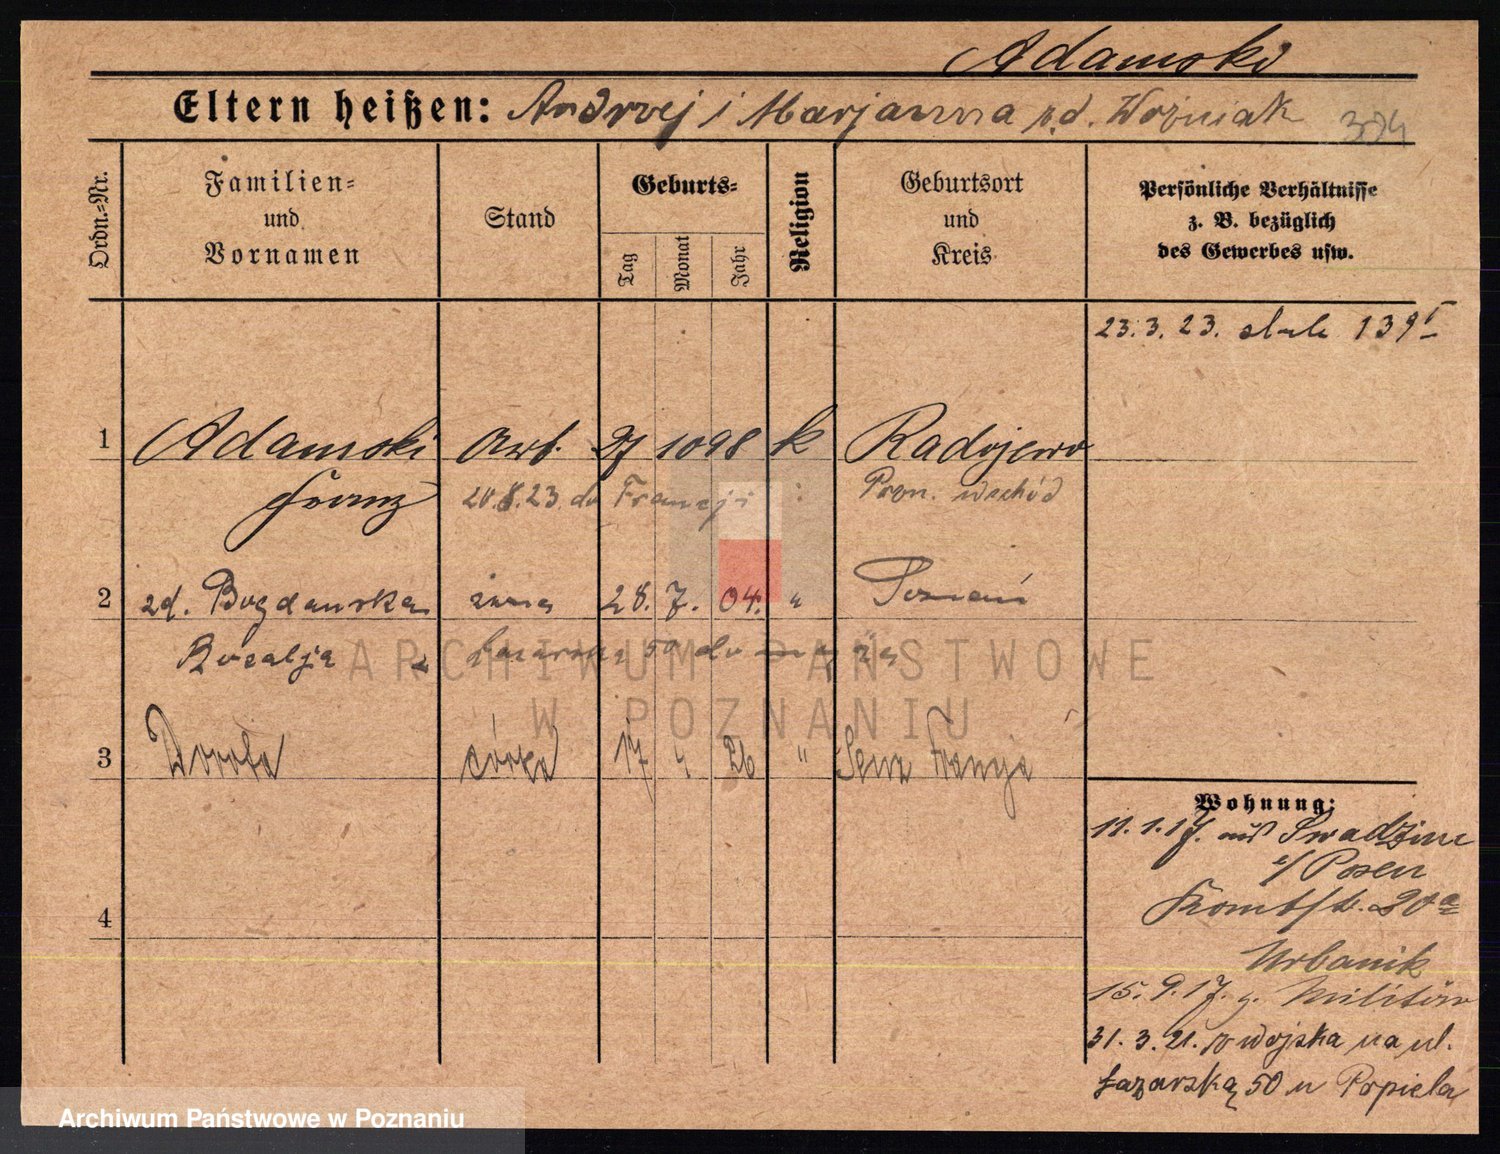 Adamski
Eltern heißen: Andrzej i Marjanna z d. Woźniak 304
Ordn.=Nr.
Familien=
und
Vornamen
Stand
Geburts=
Tag
Monat
Jahr
Religion
Geburtsort
und
Kreis
Persönliche Verhältnisse
z. B. bezüglich
des Gewerbes usw.
23. 3. 23. 139
1 Adamski Arb. 27 10 98 k Radojewo
Franz 20.8.23. do Francji Pozn. wschód
2 zd. Bogdanska żona 28. 7. 04. " Poznań
Rozalja 50 do
3 Dorota córka 17 4 26 " Francja
Wohnung:
11. 1. 17. aus Swadzim
b/ Posen
20a
Urbanik
15. 9. 17. z. Militär
31. 3. 21. z wojska na ul.
Łazarską 50 u Popiela
4
ARCHIWUM PAŃSTWOWE
W POZNANIU
Archiwum Państwowe w Poznaniu